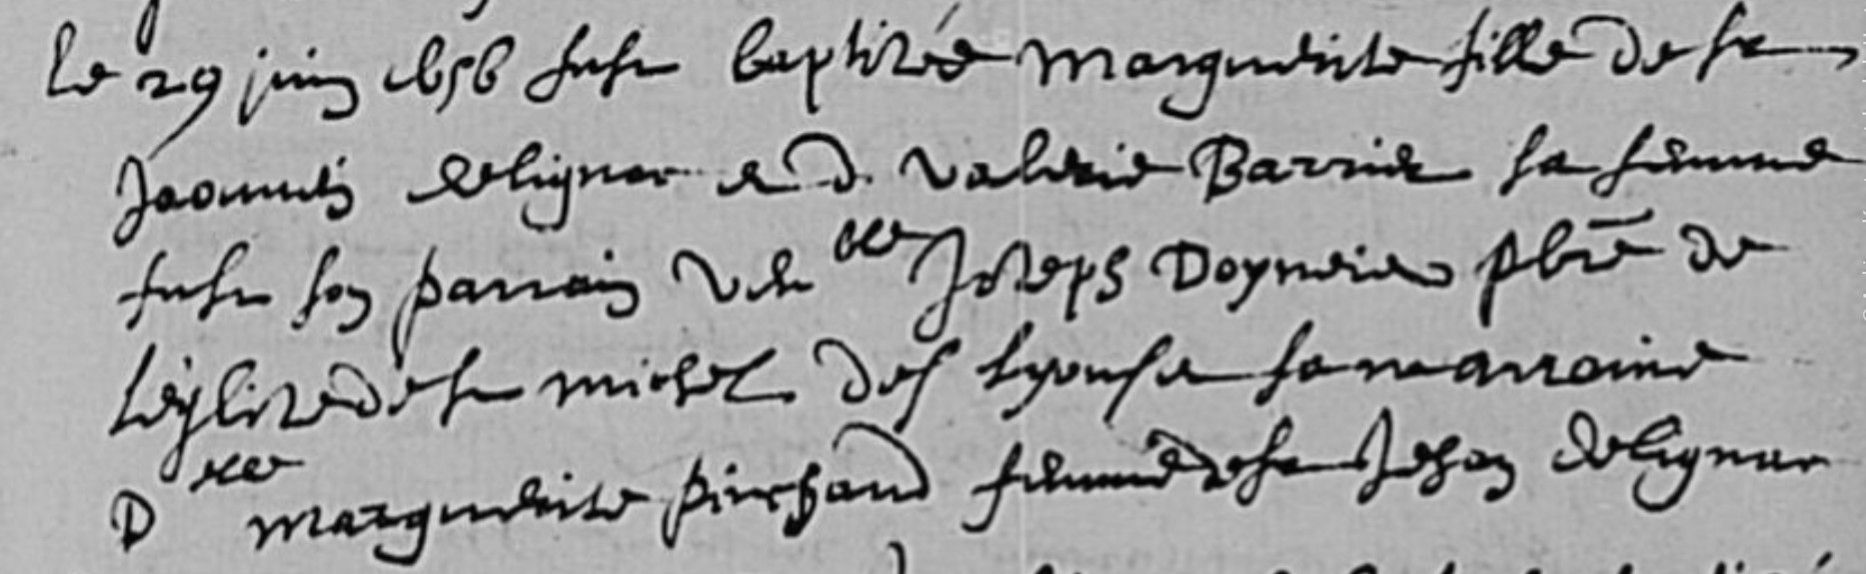 Le 29 juin 1656 fust baptizée Marguerite fille de sr
Jaoumes delignac et d. Valerie Barrier sa femme
fust son parrain Joseph Doyneix pbre de
leglize de st michel des Lyons et sa marraine
D elle marguerite pinchaud femme de sr Jehan delignac